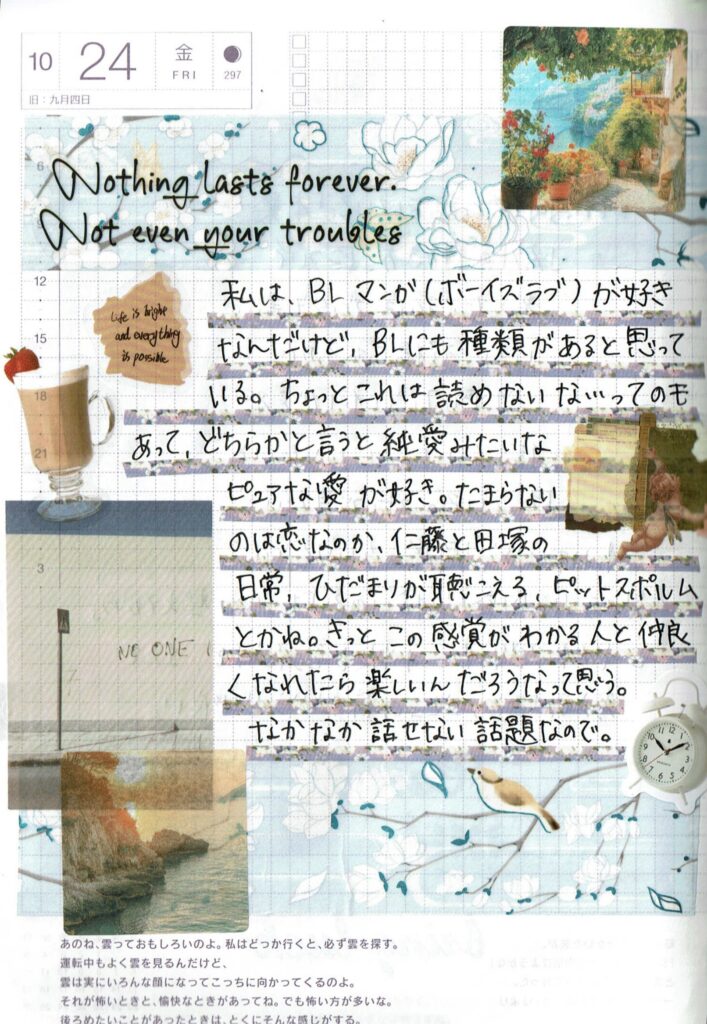 10 24 金 FRI 297
旧：九月四日
Nothing lasts forever.
Not even your troubles
6
12
15
18
21
3
Life is bright
and everything
is possible
私は、BL マンガ(ボーイズラブ)が好き
なんだけど、BLにも種類があると思って
いる。ちょっとこれは読めないな…ってのも
あって、どちらかと言うと純愛みたいな
ピュアな愛が好き。たまらない
のは恋なのか、仁藤と田塚の
日常、ひだまりが聴こえる、ピットスポルム
とかね。きっとこの感覚がわかる人と仲良
くなれたら楽しいんだろうなって思う。
なかなか話せない話題なので。
NO ONE
あのね、雲っておもしろいのよ。私はどっか行くと、必ず雲を探す。
運転中もよく雲を見るんだけど、
雲は実にいろんな顔になってこっちに向かってくるのよ。
それが怖いときと、愉快なときがあってね。でも怖い方が多いな。
後ろめたいことがあったときは、とくにそんな感じがする。